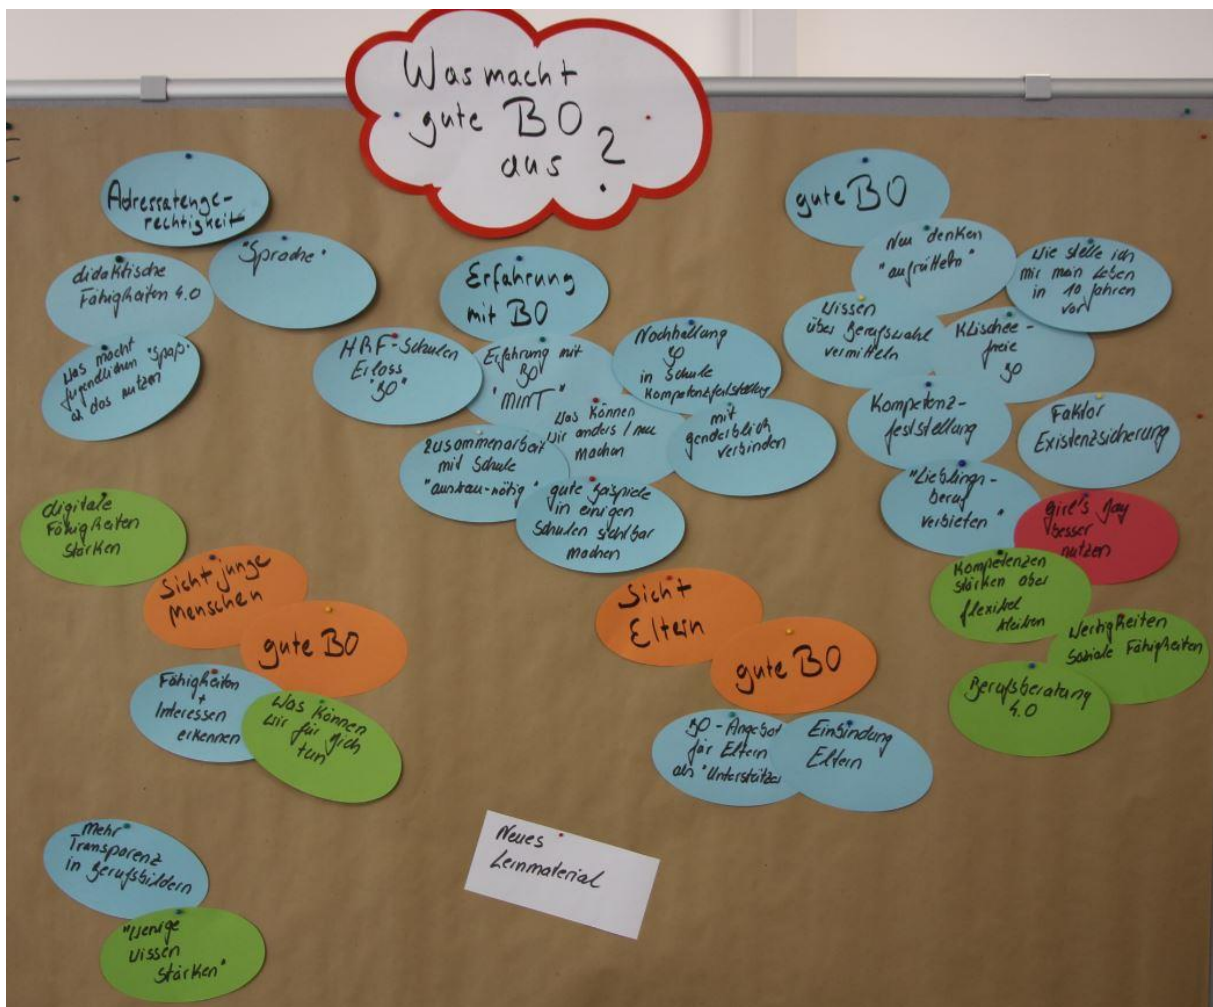 Was macht
gute BO
aus?
Adressatenge-
rechtigkeit
"Sprache"
didaktische
Fähigkeiten 4.0
Was macht
Jugendlichen "Spaß"
das nutzen
Erfahrung
mit BO
HRF-Schulen
Erlass
"BO"
Erfahrung mit
BO
"MINT"
Nachhaltung
in Schule
Kompetenzfeststellung
Was können
wir anders / neu
machen
mit
genderblick
verbinden
Zusammenarbeit
mit Schule
"ausbau-nötig"
gute Beispiele
in einigen
Schulen sichtbar
machen
gute BO
Neu denken
"aufrütteln"
Wie stelle ich
mir mein Leben
in 10 Jahren
vor
Wissen
über Berufswahl
vermitteln
Klischee-
freie
BO
Kompetenz-
feststellung
Faktor
Existenzsicherung
"Lieblings-
beruf
verbieten"
girl's Day
besser
nutzen
Kompetenzen
stärken aber
flexibel
bleiben
Wertigkeiten
Soziale Fähigkeiten
Berufsberatung
4.0
digitale
Fähigkeiten
stärken
Sicht junge
Menschen
gute BO
Fähigkeiten
+
Interessen
erkennen
Was können
wir für dich
tun
Sicht
Eltern
gute BO
BO-Angebot
für Eltern
als "Unterstützer
Einbindung
Eltern
mehr
Transparenz
in Berufsbildern
"Wenige
wissen
stärken"
Neues
Lernmaterial